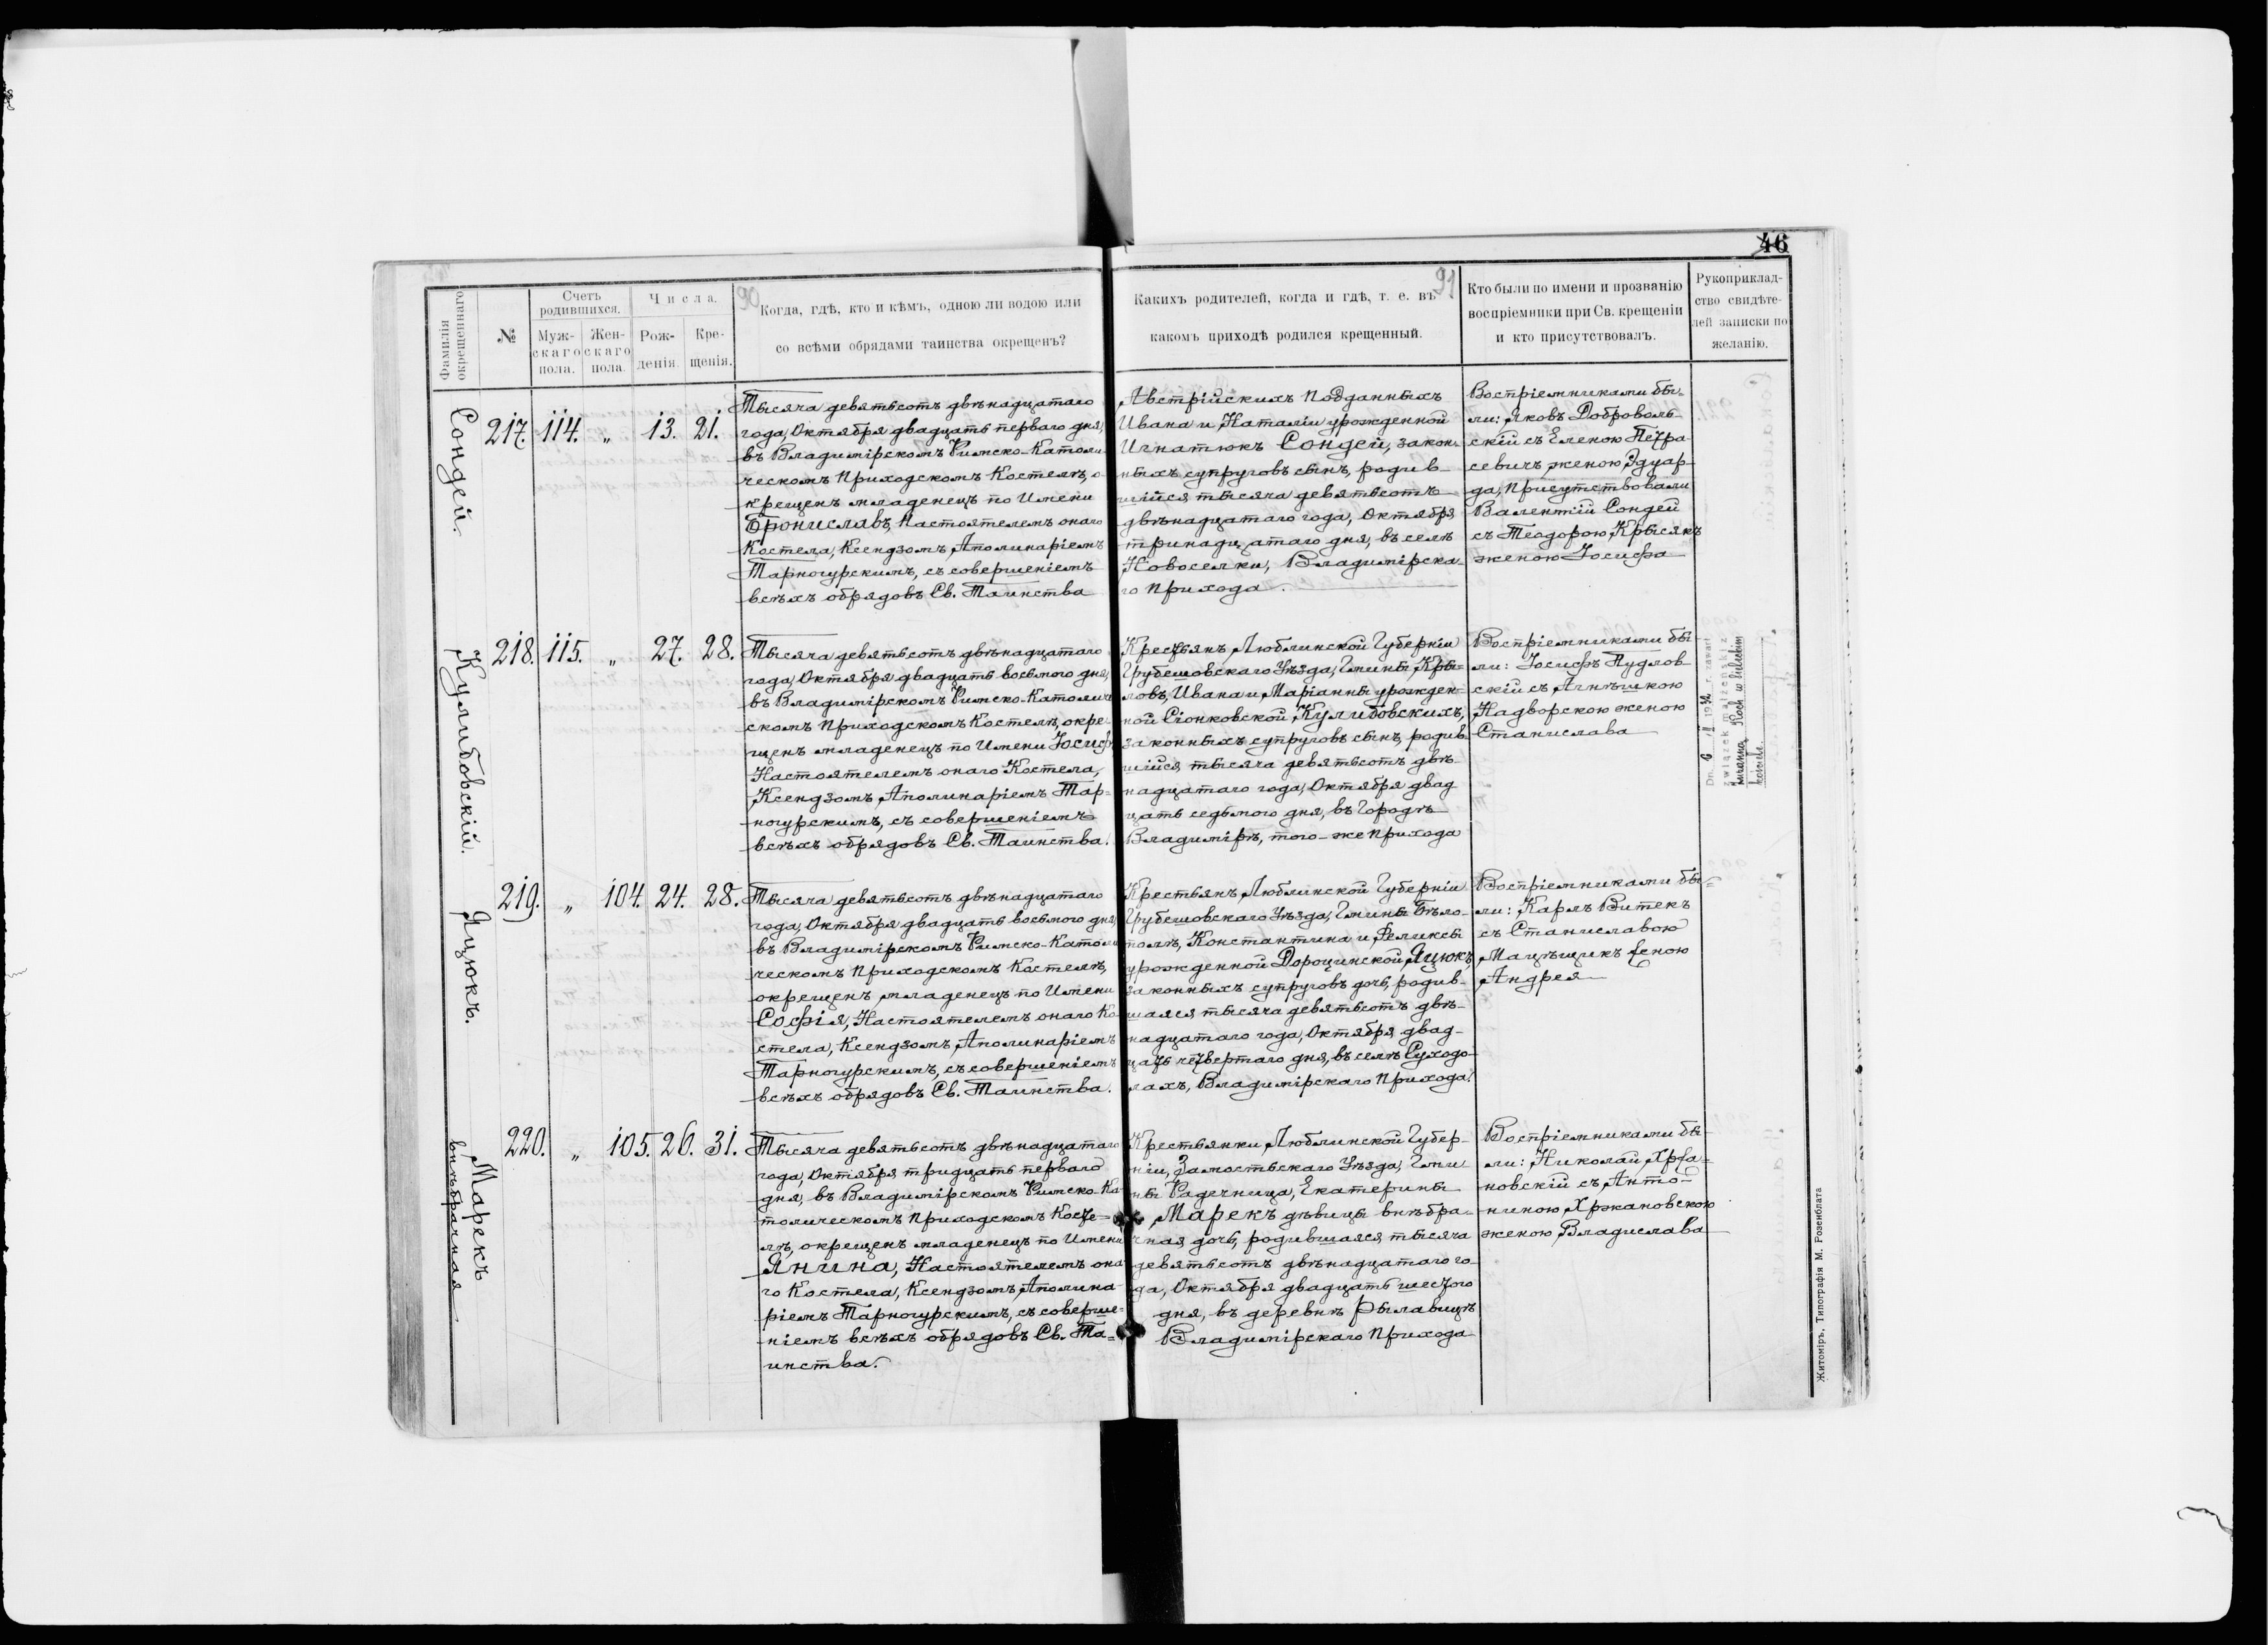 46
90
91
Фамилія
окрещеннаго.
№
Счетъ
родившихся.
Муж-
скаго
пола.
Жен-
скаго
пола.
Числа.
Рож-
денія.
Кре-
щенія.
Когда, гдѣ, кто и кѣмъ, одною ли водою или
со всѣми обрядами таинства окрещенъ?
Какихъ родителей, когда и гдѣ, т. е. въ
какомъ приходѣ родился крещенный.
Кто были по имени и прозванію
воспріемники при Св. крещеніи
и кто присутствовалъ.
Рукоприклад-
ство свидѣте-
лей записки по
желанію.
Сондей.
217. 114. „ 13. 21.
Тысяча девятьсотъ двѣнадцатаго
года, Октября двадцать перваго дня,
въ Владимірскомъ Римско-Католи-
ческомъ Приходскомъ Костелѣ, о-
крещенъ младенецъ по Имени
Брониславъ, Настоятелемъ онаго
Костела, Ксендзомъ Аполинаріемъ
Тарногурскимъ, съ совершеніемъ
всѣхъ обрядовъ Св. Таинства
Австрійскихъ Подданныхъ
Ивана и Наталіи урожденной
Игнатюкъ Сондей, закон-
ныхъ супруговъ сынъ, родив-
шійся тысяча девятьсотъ
двѣнадцатаго года, Октября
тринадцатаго дня, въ селѣ
Новоселки, Владимірска-
го Прихода.
Воспріемниками бы-
ли: Яковъ Доброволь-
скій съ Еленою Петра-
севичъ женою Эдуар-
да, Присутствовали
Валентій Сондей
съ Теодорою Крысякъ
женою Іосифа
Кулибовскій.
218. 115. „ 27. 28.
Тысяча девятьсотъ двѣнадцатаго
года, Октября двадцать восьмого дня,
въ Владимірскомъ Римско-Католиче
скомъ Приходскомъ Костелѣ, окре-
щенъ младенецъ по Имени Іосифъ
Настоятелемъ онаго Костела,
Ксендзомъ Аполинаріемъ Тар-
ногурскимъ, съ совершеніемъ
всѣхъ обрядовъ Св. Таинства.
Крестьянъ Люблинской Губерніи
Грубешовскаго Уѣзда, Гмины Кры-
ловъ, Ивана и Маріанны урожден-
ной Сіонковской Кулибовскихъ,
законныхъ супруговъ сынъ, родив
шійся тысяча девятьсотъ двѣ-
надцатаго года, Октября двад
цать седьмого дня, въ Городѣ
Владимірѣ, того-же Прихода
Воспріемниками бы-
ли: Іосифъ Пудлов-
скій съ Агнѣшкою
Надворскою женою
Станислава
Dn. 6 II 1932 r. zawarł
związek małżeński z
kościele.
Яцюкъ.
219. „ 104. 24. 28.
Тысяча девятьсотъ двѣнадцатаго
года, Октября двадцать восьмого дня,
въ Владимірскомъ Римско-Католи
ческомъ Приходскомъ Костелѣ,
окрещенъ младенецъ по Имени
Софія, Настоятелемъ онаго Ко-
стела, Ксендзомъ Аполинаріемъ
Тарногурскимъ, съ совершеніемъ
всѣхъ обрядовъ Св. Таинства.
Крестьянъ Люблинской Губерніи
Грубешовскаго Уѣзда, Гмины Бѣло-
полѣ, Константина и Феликсы
урожденной Дороцинской Яцюкъ,
законныхъ супруговъ дочь, родив-
шаяся тысяча девятьсотъ двѣ-
надцатаго года, Октября двад-
цать четвертаго дня, въ селѣ Суходо-
лахъ, Владимірскаго Прихода.
Воспріемниками бы-
ли: Карлъ Витекъ
съ Станиславою
Мацѣщикъ женою
Андрея
Марекъ
внѣбрачная
220. „ 105. 26. 31.
Тысяча девятьсотъ двѣнадцатаго
года, Октября тридцать перваго
дня, въ Владимірскомъ Римско-Ка-
толическомъ Приходскомъ Косте-
лѣ, окрещенъ младенецъ по Имени
Янина, Настоятелемъ она
го Костела, Ксендзомъ Аполина
ріемъ Тарногурскимъ, съ соверше-
ніемъ всѣхъ обрядовъ Св. Та-
инства.
Крестьянки Люблинской Губер-
ніи, Замостьскаго Уѣзда, Гми
ны Радечница, Екатерины
Марекъ дѣвицы внѣбра-
чная дочь, родившаяся тысяча
девятьсотъ двѣнадцатаго го-
да, Октября двадцать шестого
дня, въ деревнѣ Рылавицѣ
Владимірскаго Прихода
Воспріемниками бы-
ли: Николай Хржа-
новскій съ Анто-
ниною Хржановскою
женою Владислава
Житоміръ, Типографія М. Розенблата